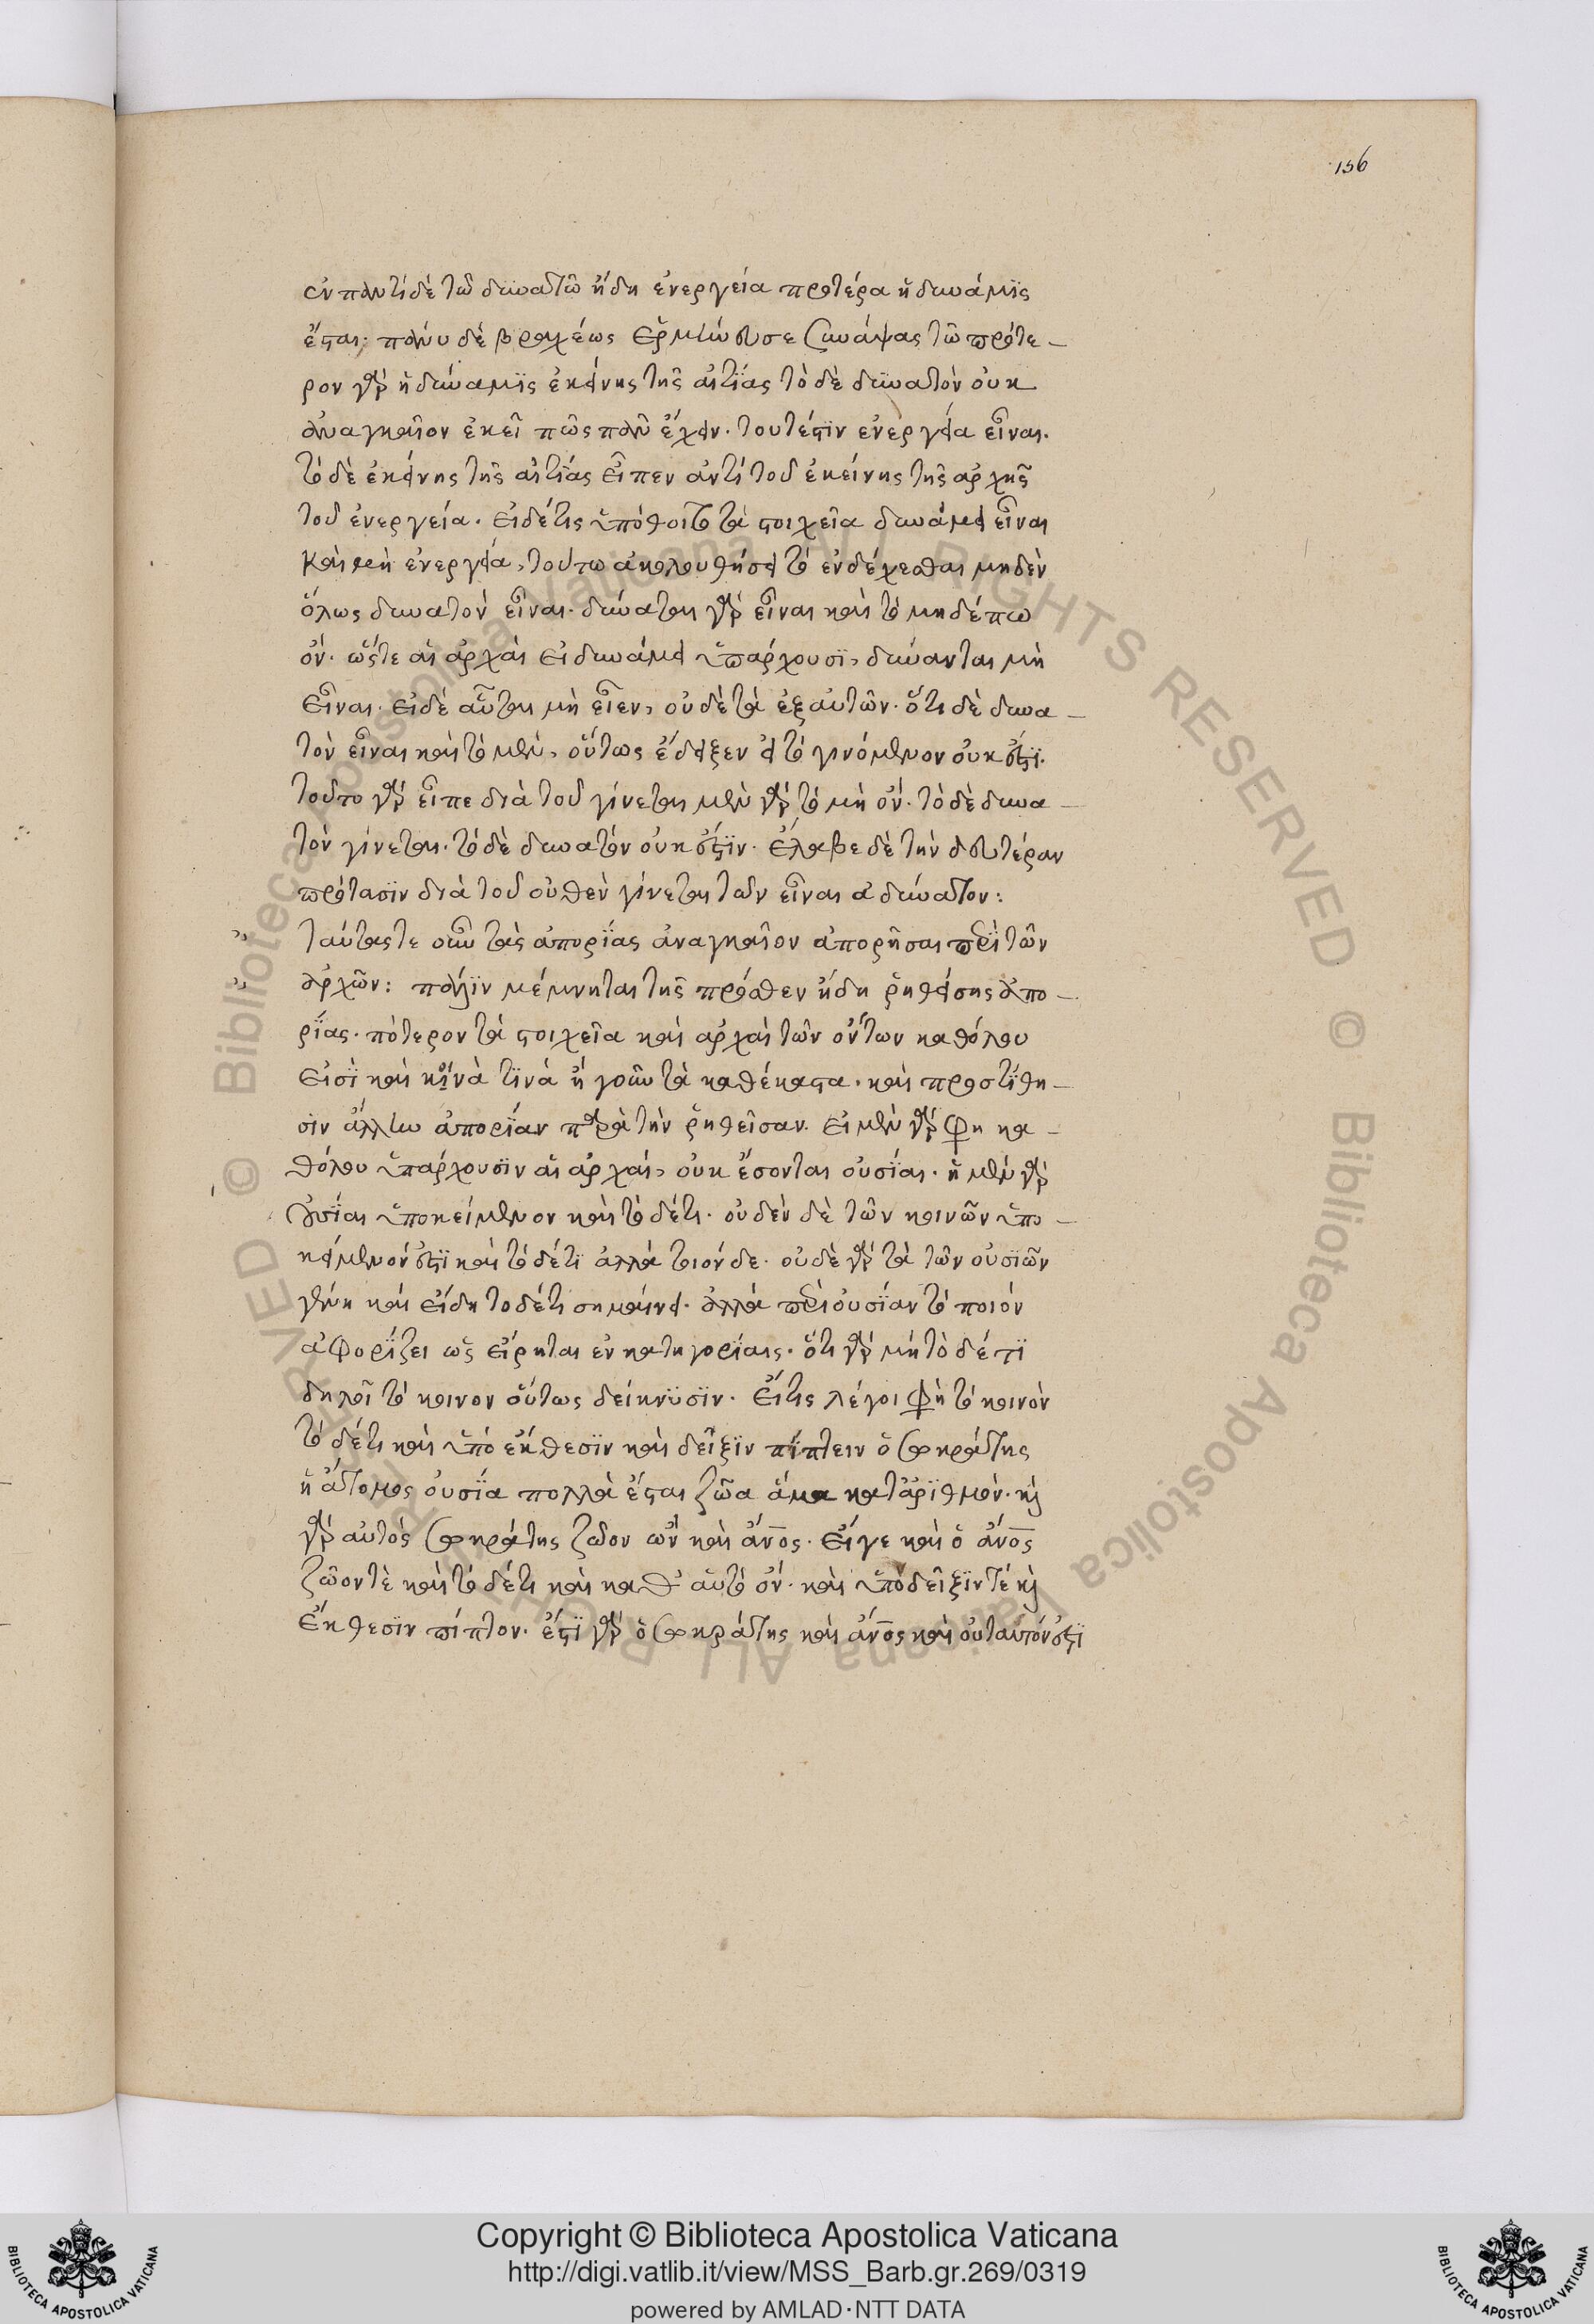 156
ἐν παντὶ δὲ τῶ δυνατῶ ἤδη ἐνεργεία προτέρα ἡ δυνάμϊς
ἔσται· πάνυ δὲ βραχέως ἑρμήνευσε συνάψας τῶ πρότε-
ρον γὰρ ἡ δύναμϊς ἐκείνης τῆς αἰτΐας τὸ δὲ δυνατὸν οὐκ
ἀναγκαῖον ἐκεῖ πῶς πᾶν ἔχειν. τουτέστϊν ἐνεργεία εἶναι.
τὸ δὲ ἐκείνης τῆς αἰτΐας εἶπεν ἀντὶ τοῦ ἐκείνης τῆς ἀρχῆς
τοῦ ἐνεργεία. εἰ δέ τις ὑπόθοιτο τὰ στοιχεῖα δυνάμει εἶναι
καὶ μὴ ἐνεργεία, τούτω ἀκολουθήσει τὸ ἐνδέχεσθαι μηδὲν
ὅλως δυνατὸν εἶναι. δύναται γὰρ εἶναι καὶ τὸ μηδέπω
ὄν. ὥστε αἱ ἀρχαὶ εἰ δυνάμει ὑπάρχουσϊ, δύανται μὴ
εἶναι. εἰ δὲ αὗται μὴ εἶεν, οὐδὲ τὰ ἐξ αὐτῶν. ὅτι δὲ δυνα-
τὸν εἶναι καὶ τὸ μὲν, οὕτως ἔδειξεν εἰ τὸ γινόμενον οὐκ ἔστϊ.
τοῦτο γὰρ εἶπε διὰ τοῦ γίνεται μὲν γὰρ τὸ μὴ ὄν. τὸ δὲ δυνα-
τὸν γίνεται. τὸ δὲ δυνατὸν οὐκ ἔστϊν. ἔλαβε δὲ τὴν δευτέραν
πρότασϊν διὰ τοῦ οὐθὲν γίνεται τῶν εἶναι ἀδύνατον:
ταύτας τε οὖν τὰς ἀπορΐας ἀναγκαῖον ἀπορῆσαι περὶ τῶν
ἀρχῶν: πάλϊν μέμνηται τῆς πρόσθεν ἤδη ῥηθείσης ἀπο-
ρΐας. πότερον τὰ στοιχεῖα καὶ ἀρχαὶ τῶν ὄντων καθόλου
εἰσῒ καὶ κοινὰ τϊνὰ ἢ γοῦν τὰ καθέκαστα. καὶ προστΐθη-
σϊν ἄλλην ἀπορΐαν παρὰ τὴν ῥηθεῖσαν. εἰ μὲν γὰρ φη κα-
θόλου ὑπάρχουσϊν αἱ ἀρχαὶ, οὐκ ἔσονται οὐσΐαι. ἡ μὲν γὰρ
οὐσΐαι ὑποκείμενον καὶ τὸ δέ τι. οὐδὲν δὲ τῶν κοινῶν ὑπο-
κείμενόν ἐστϊ καὶ τὸ δέ τϊ ἀλλὰ τοιόνδε. οὐδὲ γὰρ τὰ τῶν οὐσϊῶν
γένη καὶ εἴδη τὸ δέ τι σημαίνει. ἀλλὰ περὶ οὐσΐαν τὸ ποιόν
ἀφορΐζει ὡς εἴρηται ἐν κατηγορΐαις. ὅτι γὰρ μὴ τὸ δέ τϊ
δηλοῖ τὸ κοινον οὕτως δείκνϋσϊν. εἴ τις λέγοι φη τὸ κοινὸν
τὸ δέ τι καὶ ὑπὸ ἔκθεσϊν καὶ δεῖξϊν πΐπτειν ὁ Σωκράτης
ἡ ἄτομος οὐσΐα πολλὰ ἔσται ζῶα ἅμα κατ᾽ ἀρϊθμόν. καὶ
γὰρ αὐτὸς Σωκράτης ζῶον ὢν καὶ ἄν̅ος. εἴγε καὶ ὁ ἄν̅ος
ζῶον τὲ καὶ τὸ δέ τι καὶ καθ᾽ αὑτὸ ὄν. καὶ ὑπὸ δεῖξϊν τέ καὶ
ἔκθεσϊν πίπτον. ἔστϊ γὰρ ὁ Σωκράτης καὶ ἄν̅ος καὶ οὐ ταὐτόν ἐστϊ
Copyright © Biblioteca Apostolica Vaticana
http://digi.vatlib.it/view/MSS_Barb.gr.269/0319
powered by AMLAD·NTT DATA